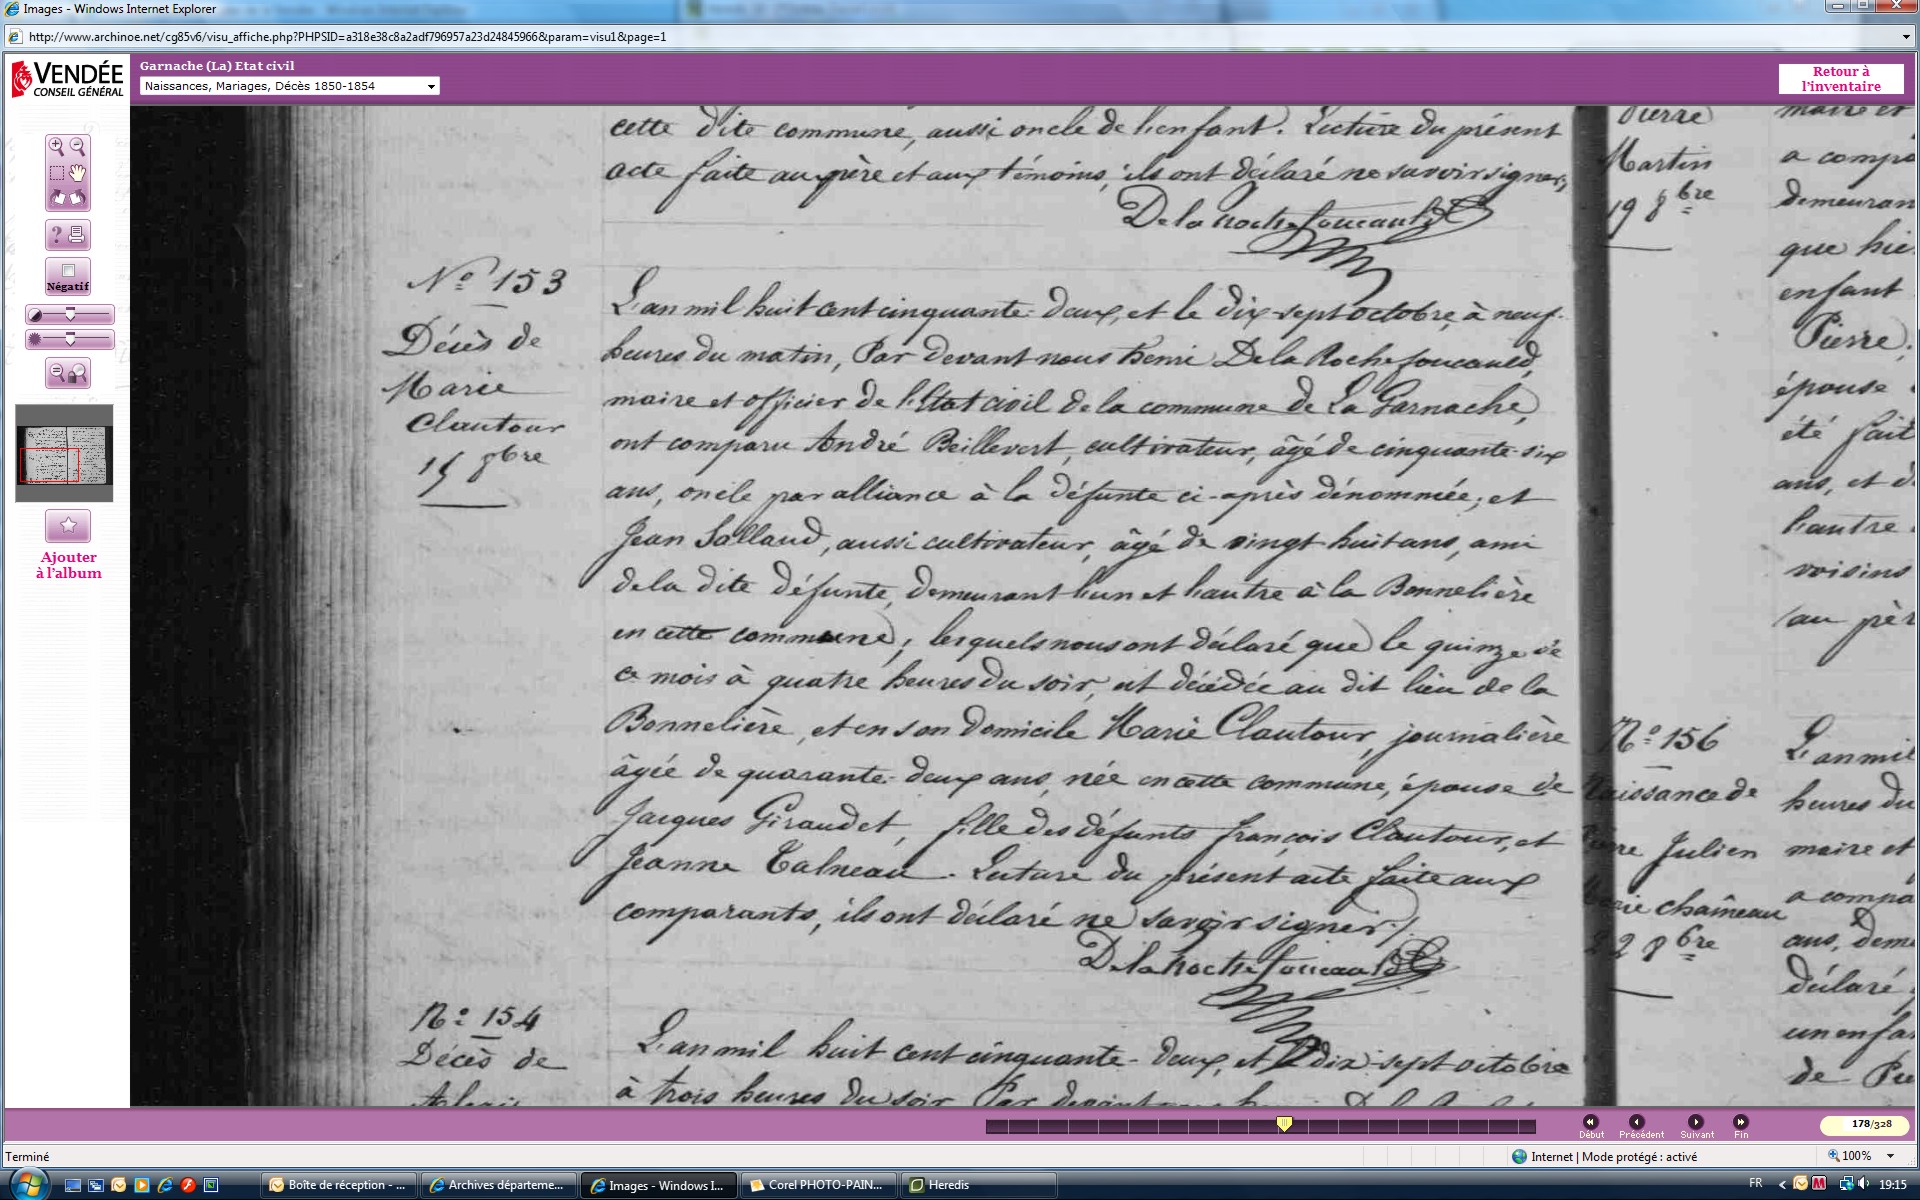 Images - Windows Internet Explorer
http://www.archinoe.net/cg85v6/visu_affiche.php?PHPSID=a318e38c8a2adf796957a23d24845966&param=visu1&page=1
VENDÉE
CONSEIL GÉNÉRAL
Garnache (La) Etat civil
Naissances, Mariages, Décès 1850-1854
Retour à
l'inventaire
Négatif
Ajouter
à l'album
cette dite commune, aussi oncle de l'enfant. Lecture du présent
acte faite au père et aux témoins, ils ont déclaré ne savoir signer,
De la Rochefoucauld
N° 153
Décès de
Marie
Clautour
15 8bre
L'an mil huit cent cinquante-deux, et le dix-sept octobre, à neuf
heures du matin, Par devant nous henri De la Rochefoucauld,
maire et officier de l'Etat civil de la commune de La Garnache,
ont comparu André Beillevert, cultivateur, âgé de cinquante-six
ans, oncle par alliance à la défunte ci-après dénommée; et
Jean Sallaud, aussi cultivateur, âgé de vingt huit ans, ami
de la dite défunte, demeurant l'un et l'autre à la Bonnelière
en cette commune, lesquels nous ont déclaré que le quinze de
ce mois à quatre heures du soir, est décédée au dit lieu de la
Bonnelière, et en son domicile Marie Clautour, journalière
âgée de quarante-deux ans, née en cette commune, épouse de
Jacques Giraudet, fille des défunts françois Clautour, et
Jeanne Talneau. Lecture du présent acte faite aux
comparants, ils ont déclaré ne savoir signer./.
De la Rochefoucauld
N° 154
Décès de
L'an mil huit cent cinquante-deux, et le dix-sept octobre
à trois heures du soir, Par devant nous
Pierre
Martin
19 8bre
maire et
a compa
demeuran
que hie
enfant
Pierre,
épouse
été fait
ans, et d
l'autre
voisins
au pèr
N° 156
Naissance de
Pierre Julien
Marie chaîneau
22 8bre
L'an mil
heures du
maire et
a compa
ans, deme
déclaré
un enfa
de Pie
Début
Précédent
Suivant
Fin
178/328
Terminé
Internet | Mode protégé : activé
100%
Boîte de réception - ...
Archives départeme...
Images - Windows I...
Corel PHOTO-PAIN...
Heredis
FR
19:15